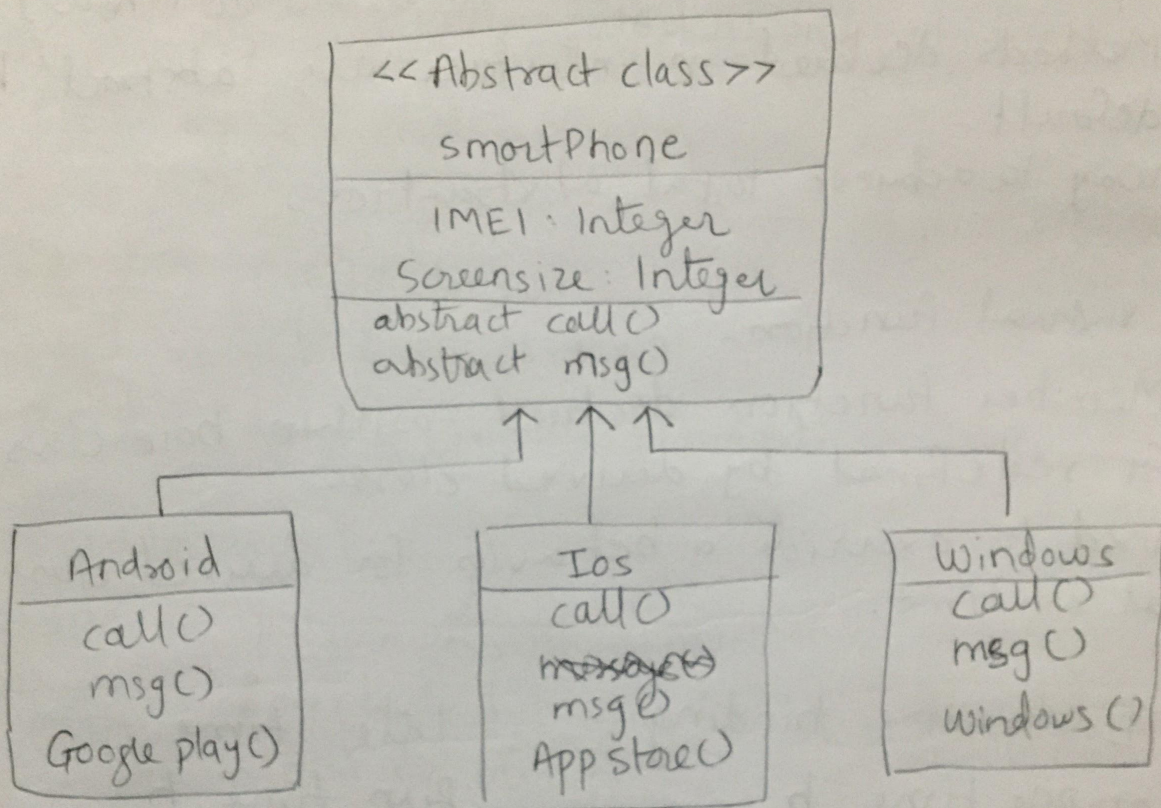 <<Abstract class>>
smartPhone
IMEI : Integer
Screensize : Integer
abstract call()
abstract msg()
Android
call()
msg()
Google play()
Ios
call()
msg()
App store()
Windows
call()
msg()
windows()